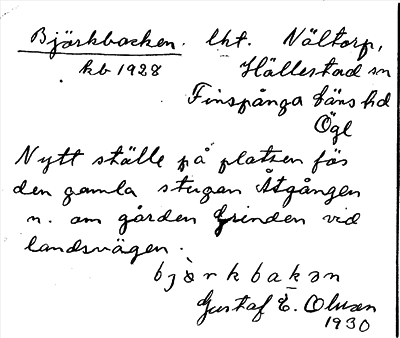 Björkbacken. lht. Nältorp,
kb 1928 Hällestad sn
Finspånga läns hd
Ögl
Nytt ställe på platsen för
den gamla stugan Åtgången
n. om gården Grinden vid
landsvägen.
bjòrkbakən
Gustaf E. Olsson
1930